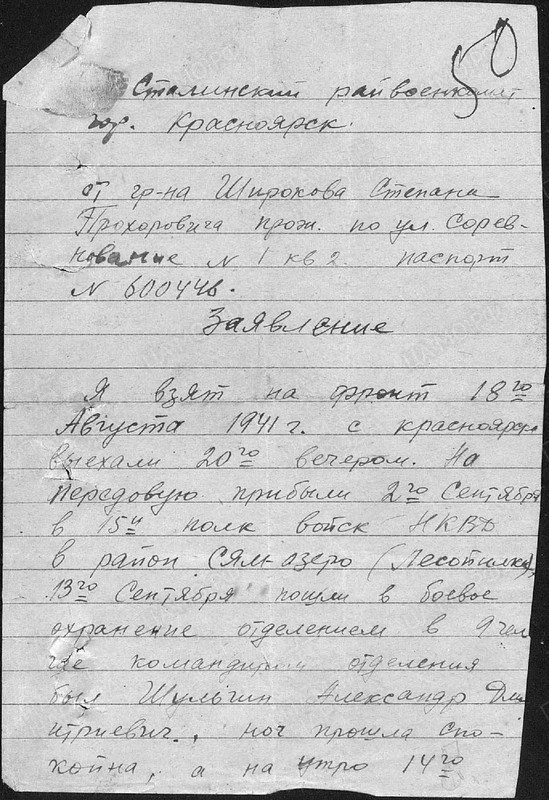 50
Сталинский райвоенкомат
гор. Красноярск.
от гр-на Широкова Степана
Прохоровича прож. по ул. Сорев-
нование N 1 кв 2. паспорт
N 600446.
Заявление
Я взят на фронт 18го
Августа 1941 г. с красноярска
выехали 20го вечером. На
передовую прибыли 2го Сентября
в 15й полк войск НКВД
в район Сям-азеро (Лесопилка)
13го Сентября пошли в боевое
охранение отделением в 9 чел
где командиром отделения
был Шульгин Александр Дми
итриевич., ноч прошла спо-
койна, а на утро 14го